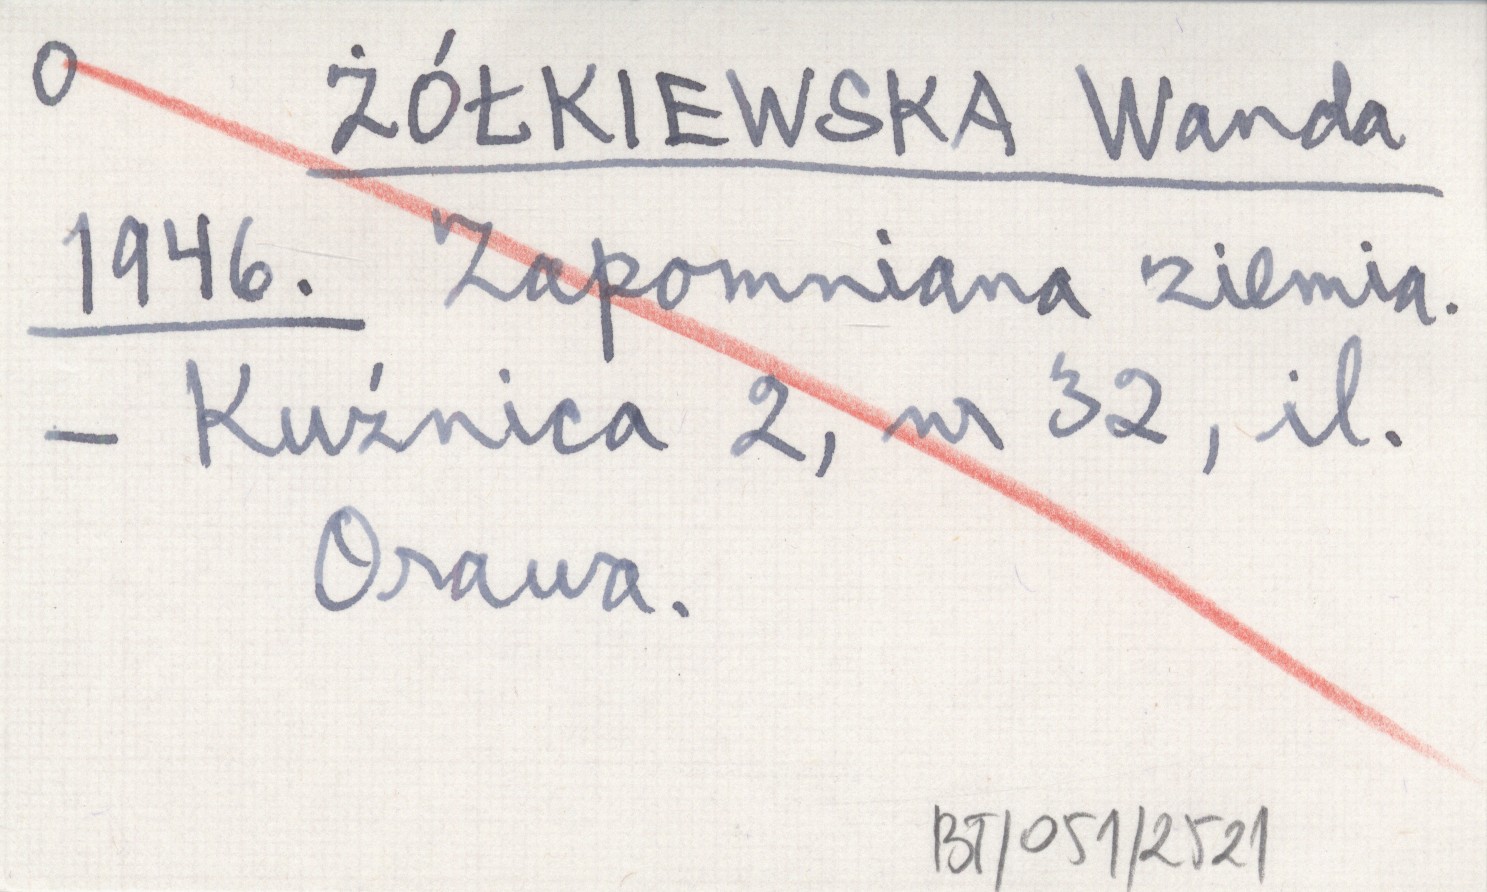 O ŻÓŁKIEWSKA Wanda
1946. Zapomniana ziemia.
– Kuźnica 2, nr 32, il.
Orawa.
BT/051/2521